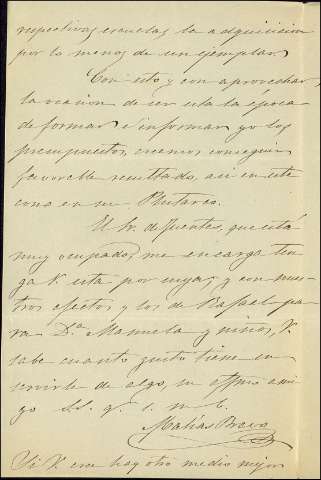 respectivas escuelas la adquisición
por lo menos de un ejemplar.
Con esto y con aprovechar
la ocasion de ser esta la época
de formar é informar yo los
presupuestos, creemos conseguir
favorable resultado, asi en este
como en su Plutarco.
El Sr. de Fuentes, que está
muy ocupado, me encarga ten-
ga V. esta por suya, y con nues-
tros afectos y los de Rafael pa-
ra D.ª Manuela y niños, V.
sabe cuanto gusto tiene en
servirle de algo, su affmo ami-
go SS. q. s. m. b.
Matías Bravo
Si V. cree hay otro medio mejor